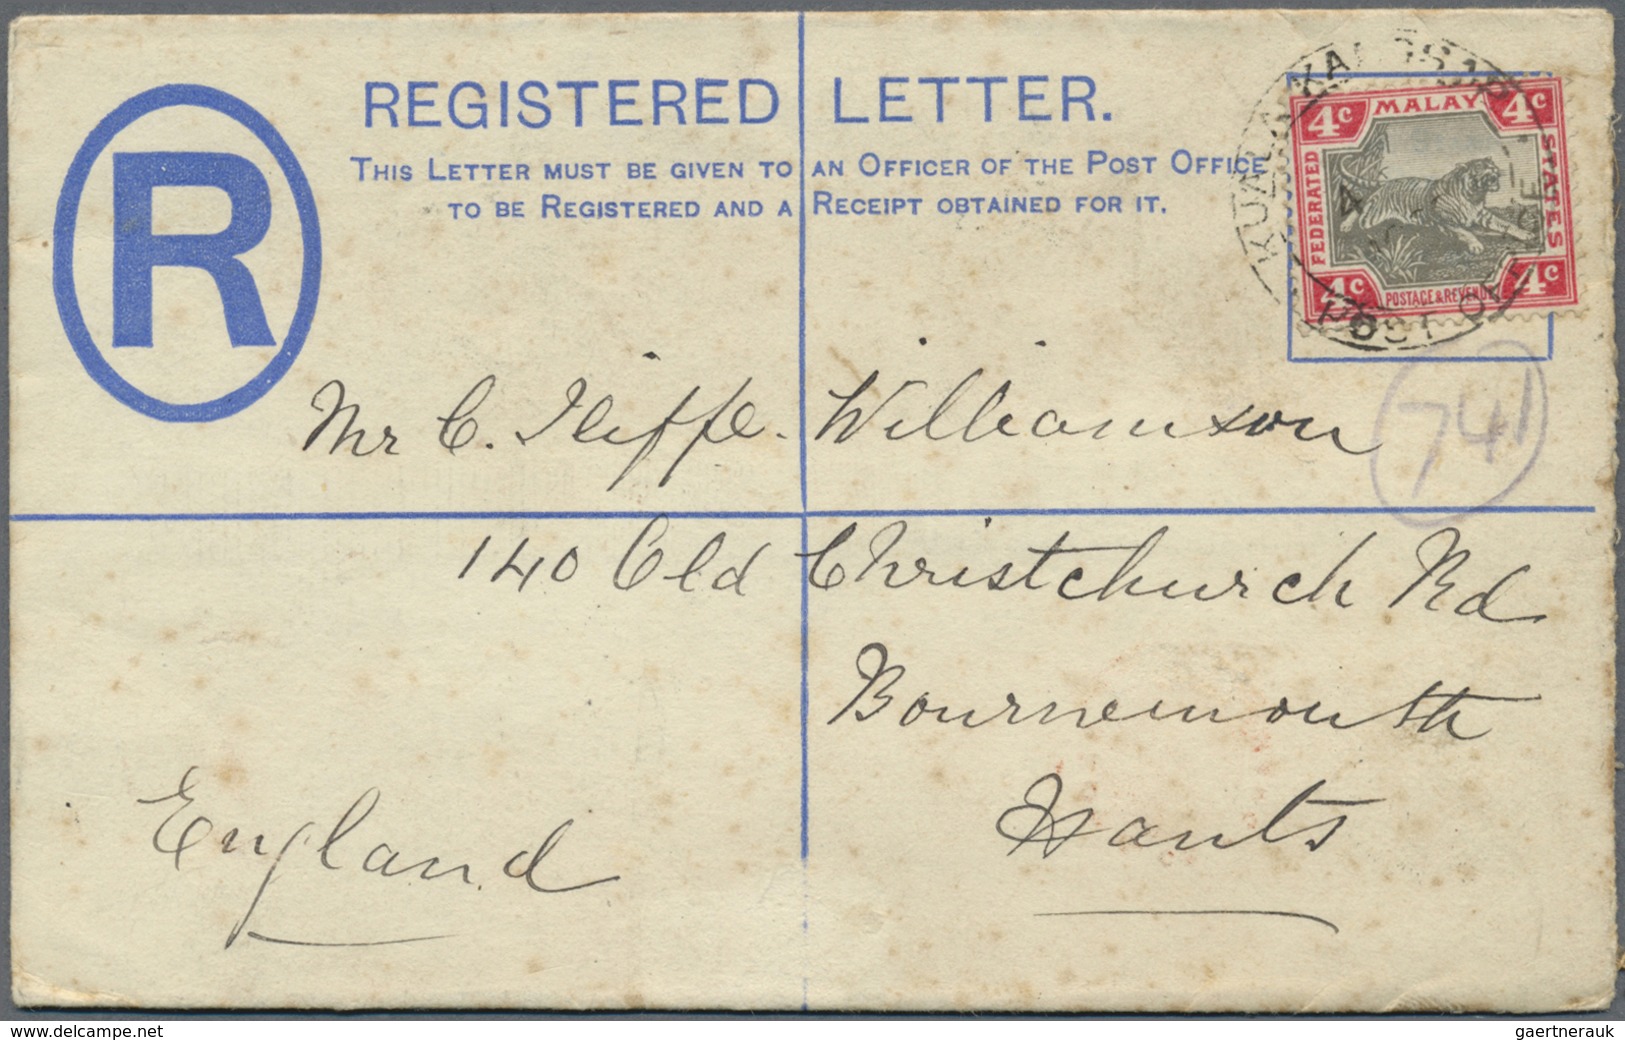 REGISTERED LETTER.
THIS LETTER MUST BE GIVEN TO AN OFFICER OF THE POST OFFICE
TO BE REGISTERED AND A RECEIPT OBTAINED FOR IT.
R
4c MALAY 4c
FEDERATED
STATES
4c POSTAGE & REVENUE 4c
KUALA KANGSAR
POST OFFICE
4
741
Mr C. Iliffe. Williamson
140 Old Christchurch Rd
Bournemouth
Hants
England
www.delcampe.net
gaertnerauk